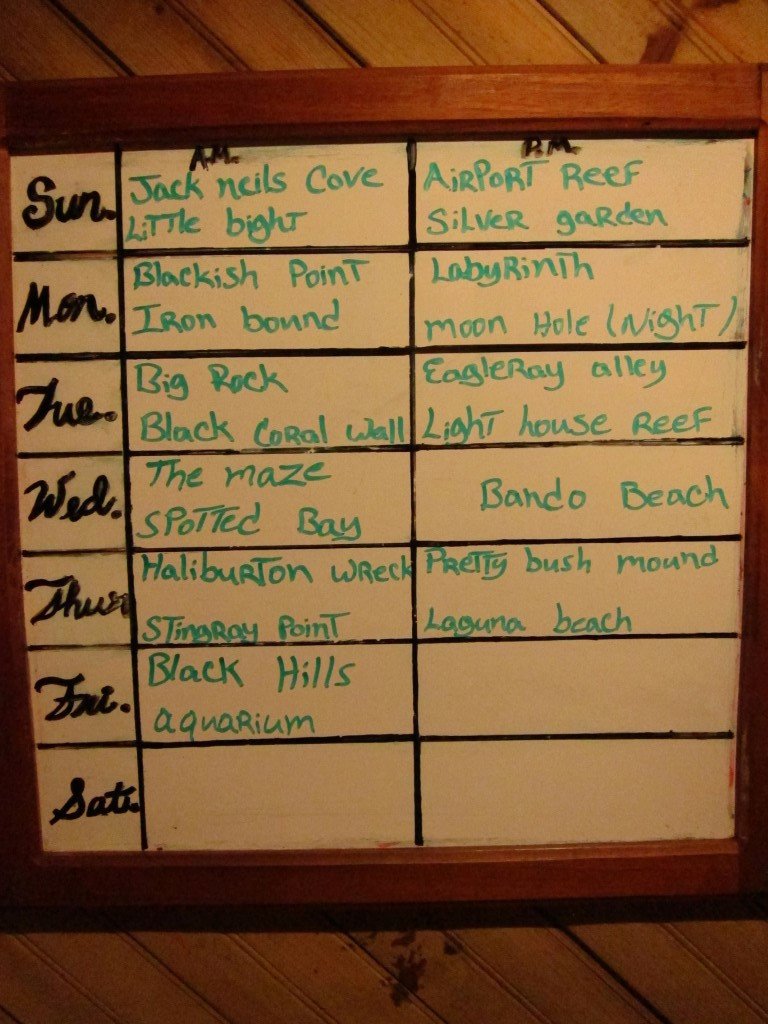 A.M. P.M.
Sun. Jack neils Cove AiRPORT REEF
LiTTle bighT SilVER gaRden
Mon. Blackish PoinT LabyRinth
IRon bound moon Hole (NighT)
Tue. Big Rock EagleRay alley
Black CoRal Wall LighT house REEF
Wed. The maze Bando Beach
SPoTTEd Bay
Thur HaliburTon WReck PReTTy bush mound
STingRay PoinT Laguna beach
Fri. Black Hills
aquaRium
Sat.